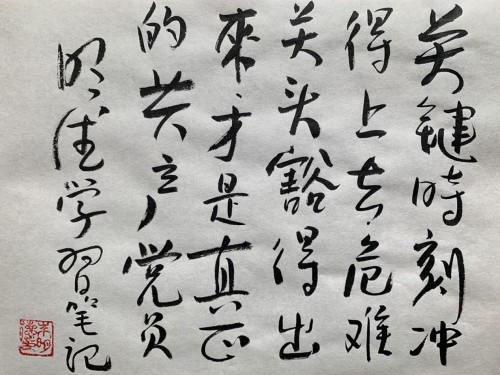 关键時刻冲
得上去危难
关头豁得出
來才是真正
的共产党员
明德学習笔记